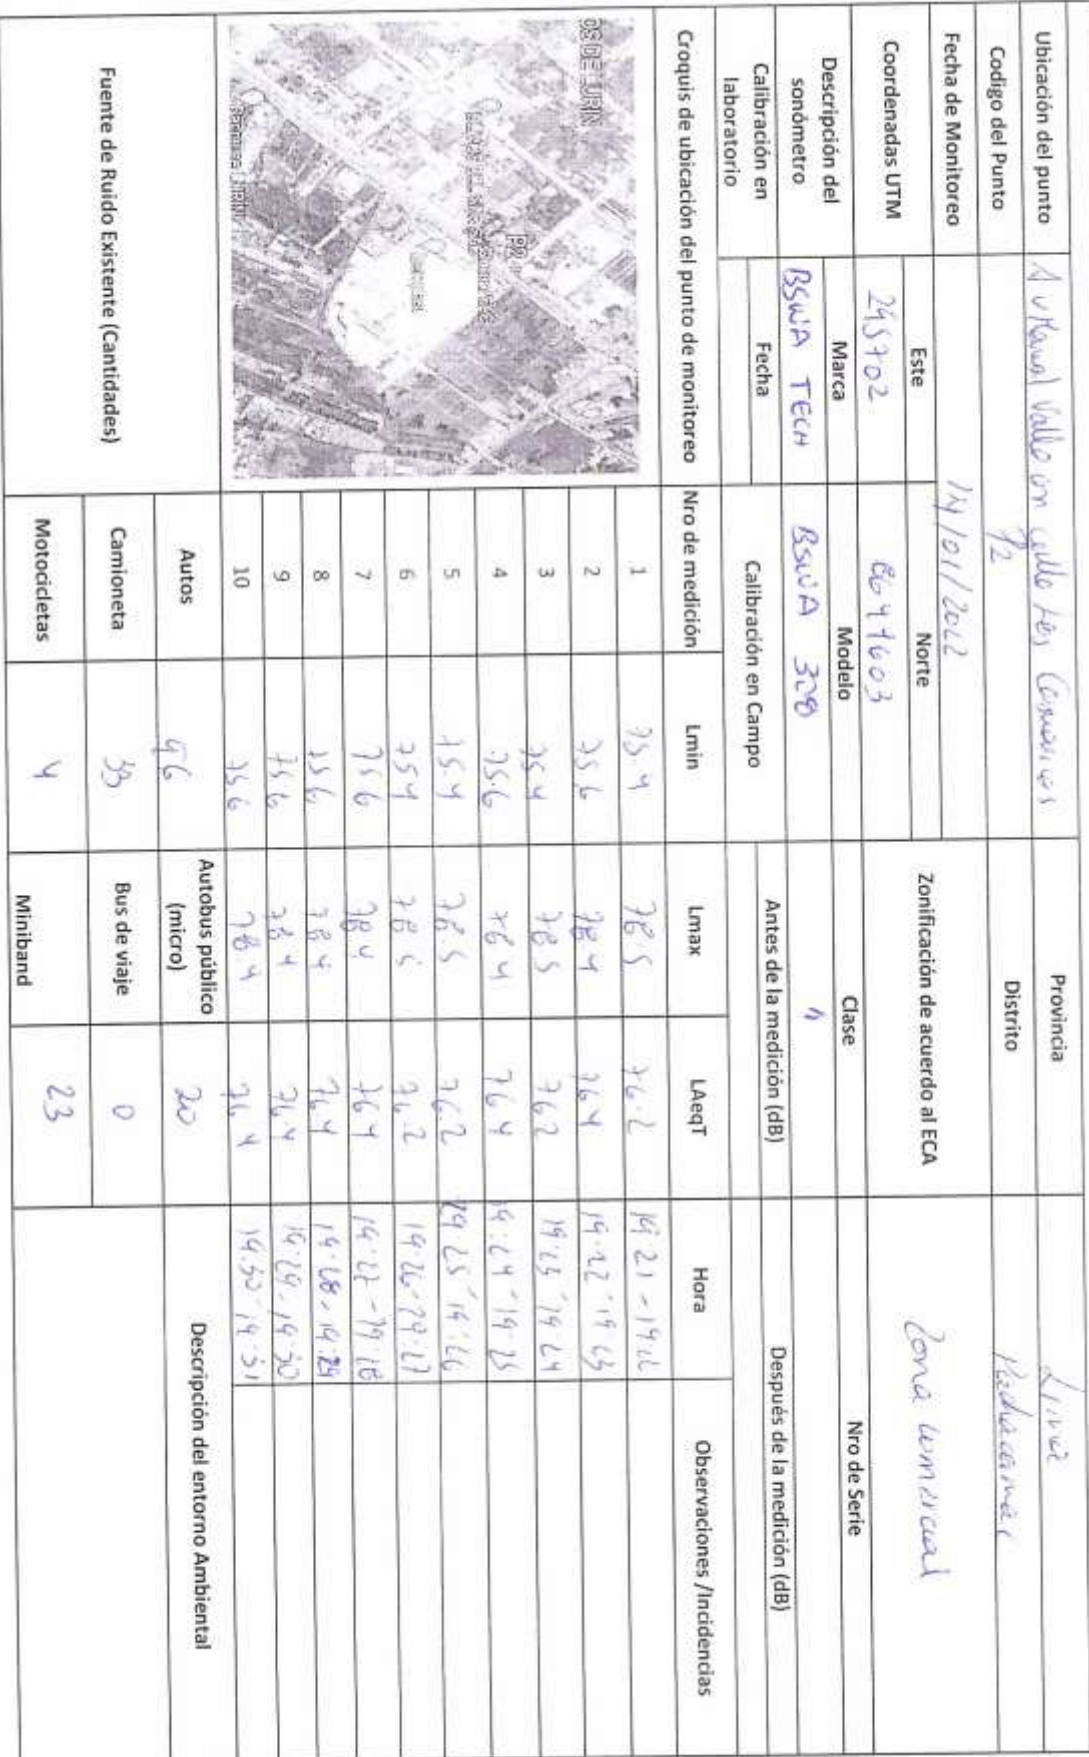 Ubicación del punto Provincia Lima
Codigo del Punto P2 Distrito Pachacamac
Fecha de Monitoreo 14/01/2022 Zonificación de acuerdo al ECA Zona comercial
Coordenadas UTM Este Norte
295702
Descripción del sonómetro Marca Modelo Clase Nro de Serie
BSWA TECH BSWA 308
Calibración en laboratorio Fecha Calibración en Campo Antes de la medición (dB) Después de la medición (dB)
Croquis de ubicación del punto de monitoreo Nro de medición Lmin Lmax LAeqT Hora Observaciones /Incidencias
OS DE LURIN
P2
1 75.4 78 5 76.2 19 21 - 19 22
2 75.6 78 4 76 4 19:22 - 19 23
3 75 4 78 5 76 2 19:23 - 19 24
4 75.6 78 4 76 4 19:24 - 19:25
5 75.4 78 5 76.2 19 25 - 19:26
6 75 4 78 5 76.2 19:26 - 19:27
7 75 6 78 4 76 4 19:27 - 19 28
8 75 6 78 4 76 4 19:28 - 19:29
9 75 6 78 4 76 4 19:29 - 19:30
10 75 6 78 4 76 4 19:30 - 19:31
Fuente de Ruido Existente (Cantidades) Autos 46 Autobus público (micro) 20 Descripción del entorno Ambiental
Camioneta 33 Bus de viaje 0
Motocicletas 4 Miniband 23